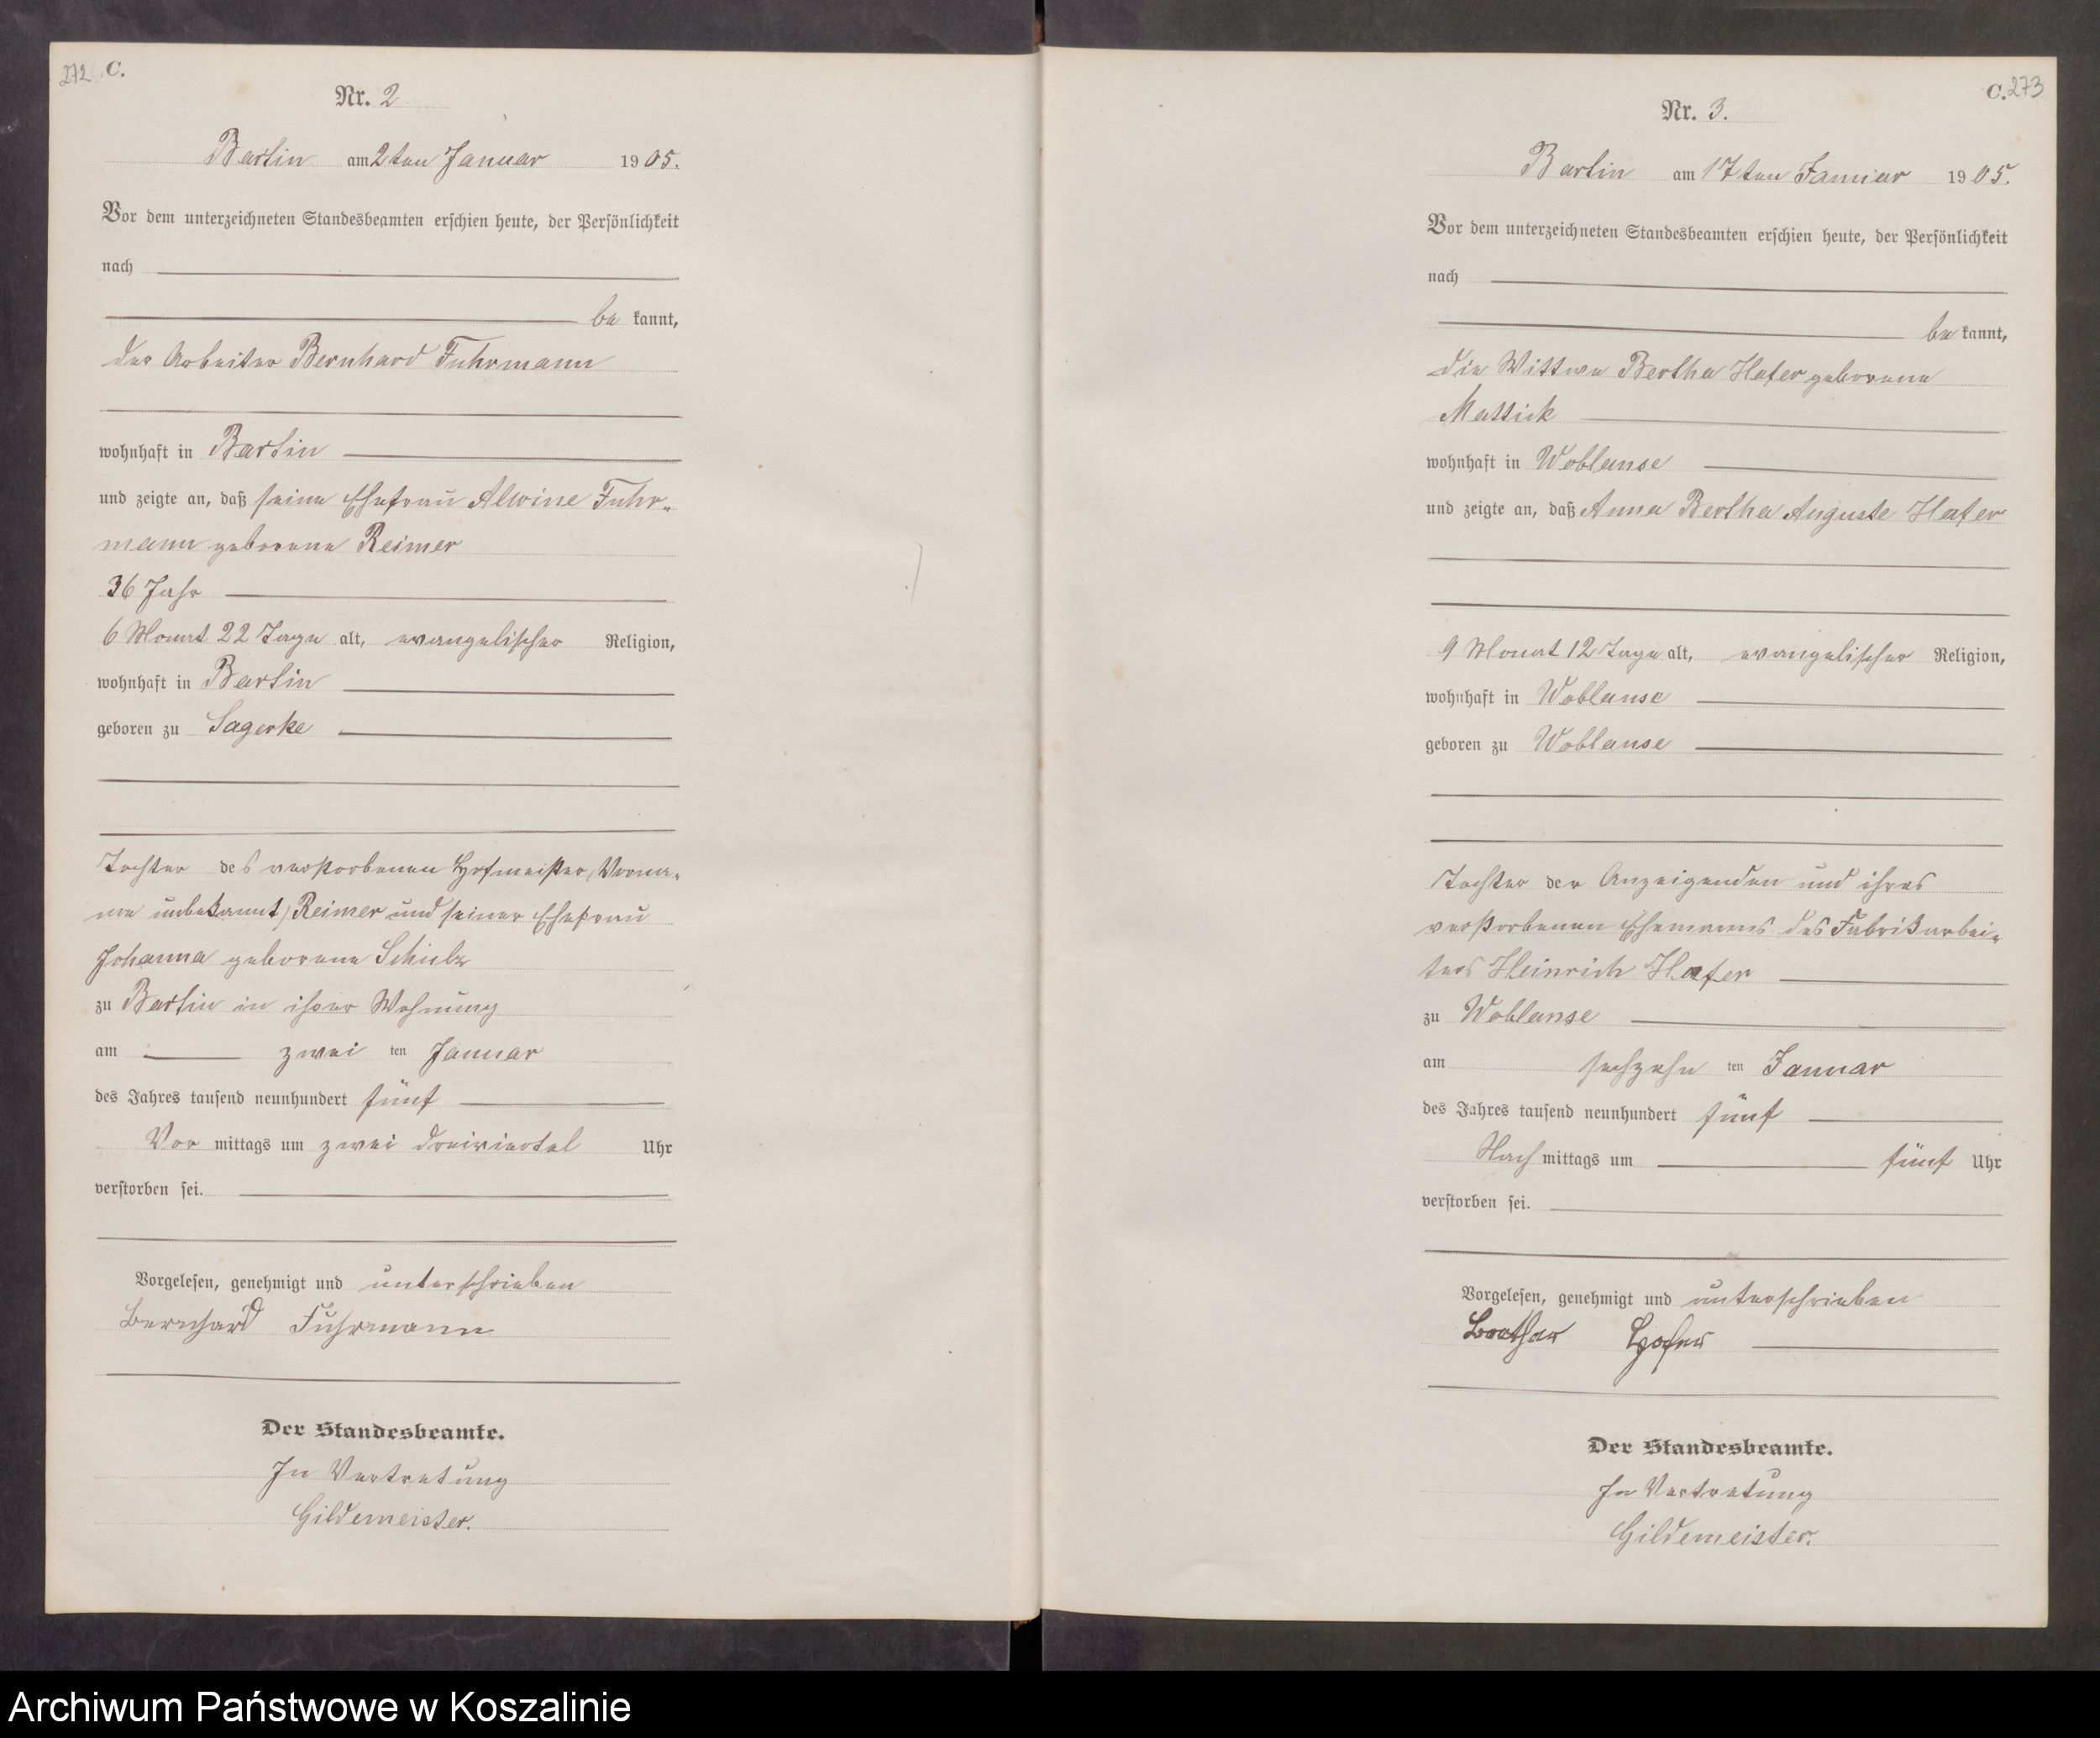 272 C.
Nr. 2
Bartin am 2ten Januar 1905.
Vor dem unterzeichneten Standesbeamten erschien heute, der Persönlichkeit
nach
be kannt,
der Arbeiter Bernhard Fuhrmann
wohnhaft in Bartin
und zeigte an, daß seine Ehefrau Alwine Fuhr-
mann geborene Reimer
36 Jahr
6 Monat 22 Tage alt, evangelischer Religion,
wohnhaft in Bartin
geboren zu Sagerke
Tochter des verstorbenen Hofmeister, (Vorna-
me unbekannt) Reimer und seiner Ehefrau
Johanna geborene Schulz
zu Bartin in ihrer Wohnung
am zwei ten Januar
des Jahres tausend neunhundert fünf
Vor mittags um zwei dreiviertel Uhr
verstorben sei.
Vorgelesen, genehmigt und unterschrieben
Bernhard Fuhrmann
Der Standesbeamte.
In Vertretung
Gildemeister.
C. 273
Nr. 3.
Bartin am 17ten Januar 1905.
Vor dem unterzeichneten Standesbeamten erschien heute, der Persönlichkeit
nach
be kannt,
die Wittwe Bertha Hafer geborene
Mattick
wohnhaft in Woblanse
und zeigte an, daß Anna Bertha Auguste Hafer
9 Monat 12 Tage alt, evangelischer Religion,
wohnhaft in Woblanse
geboren zu Woblanse
Tochter der Anzeigenden und ihres
verstorbenen Ehemanns des Fabrikarbei-
ters Heinrich Hafer
zu Woblanse
am sechzehn ten Januar
des Jahres tausend neunhundert fünf
Nach mittags um fünf Uhr
verstorben sei.
Vorgelesen, genehmigt und unterschrieben
Der Standesbeamte.
In Vertretung
Gildemeister.
Archiwum Państwowe w Koszalinie